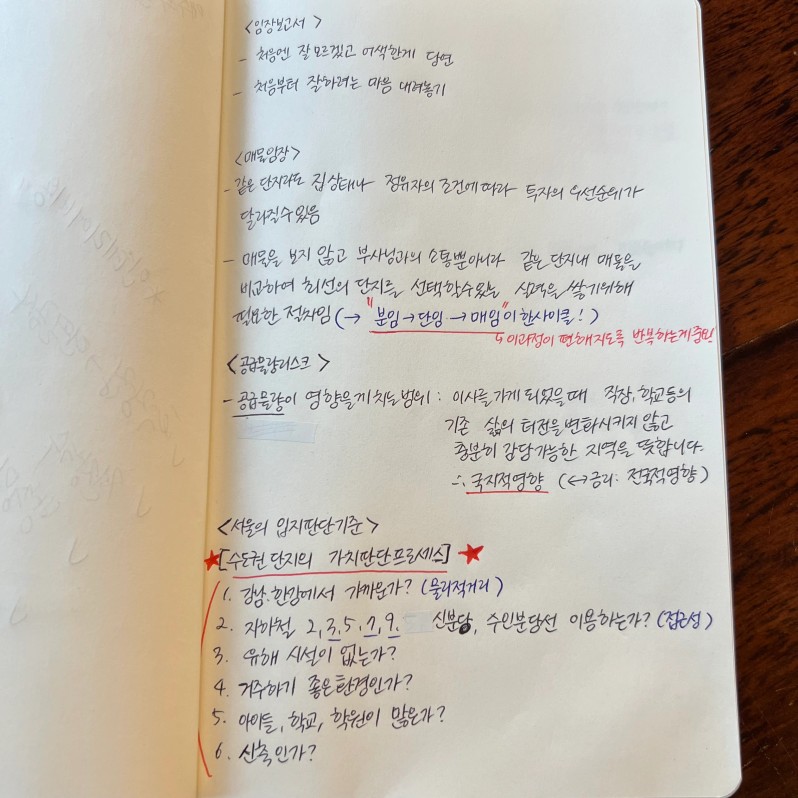 <임장보고서>
- 처음엔 잘 모르겠고 어색한게 당연
- 처음부터 잘하려는 마음 내려놓기
<매물임장>
- 같은 단지라도 집상태나 점유자의 조건에 따라 투자의 우선순위가
달라질 수 있음
- 매물을 보지 않고 부사님과의 소통뿐아니라 같은 단지내 매물을
비교하여 최선의 단지를 선택할 수 있는 실력을 쌓기위해
필요한 절차임 (→ "분임→단임→매임"이 한사이클!)
↳ 이과정이 편해지도록 반복하는게 중요!
<공급물량리스크>
- 공급물량이 영향을 끼치는 범위 : 이사를 가게 되었을 때 직장, 학교등의
기존 삶의 터전을 변화시키지 않고
충분히 감당가능한 지역을 뜻합니다.
∴ 국지적영향 (↔ 금리: 전국적영향)
<서울의 입지판단기준>
★[수도권 단지의 가치판단프로세스]★
1. 강남.한강에서 가까운가? (물리적거리)
2. 지하철 2,3,5,7,9. 신분당, 수인분당선 이용하는가? (접근성)
3. 유해 시설이 없는가?
4. 거주하기 좋은 환경인가?
5. 아이들, 학교, 학원이 많은가?
6. 신축인가?